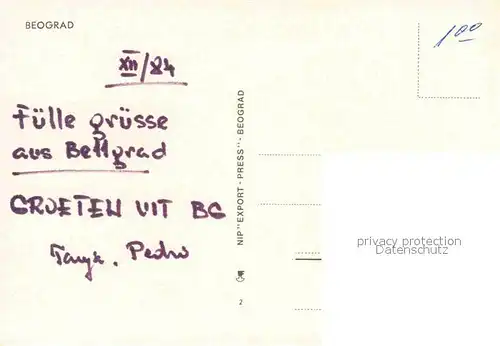 BEOGRAD
XII/84
Fülle grüsse
aus Bellgrad
GROETEN UIT BG
Tanya. Pedro
NIP "EXPORT-PRESS" - BEOGRAD
2
100
privacy protection
oldthing.com